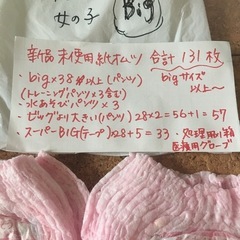 女の子
Big
新品未使用紙オムツ 合計131枚
・big×38枚以上(パンツ)
(トレーニングパンツ×3含む)
bigサイズ
以上〜
・水あそびパンツ×3
・ビッグより大きい(パンツ) 28×2=56+1=57
・スーパーBIG(テープ)28+5=33 ・処理用小箱
医療用グローブ